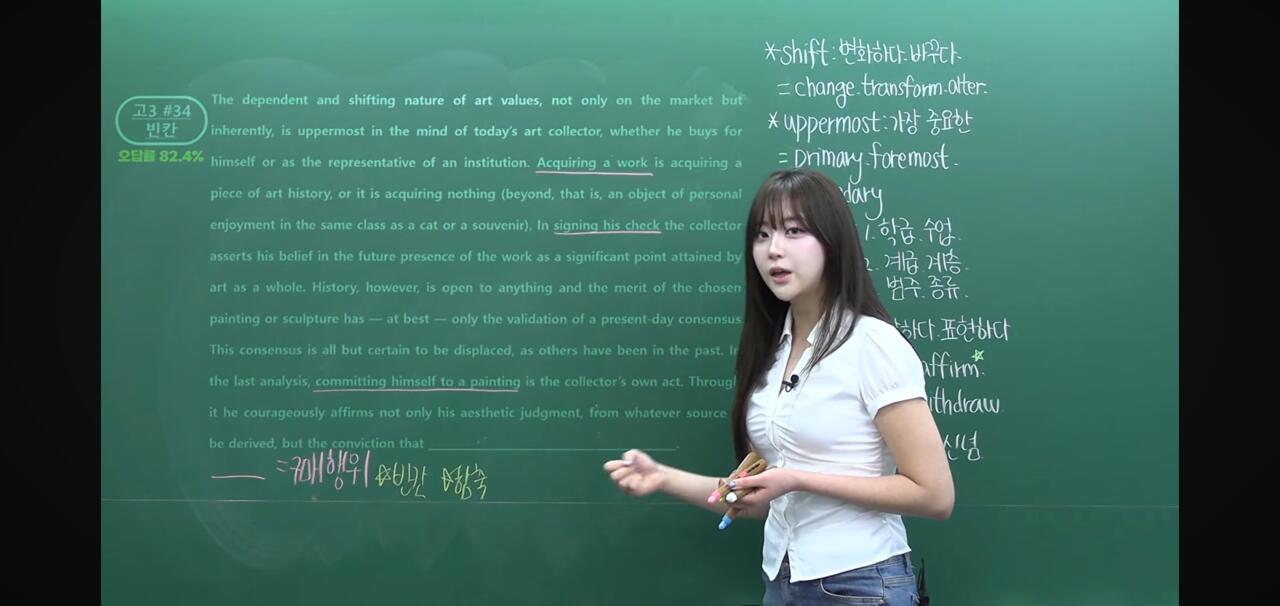 고3 #34
빈칸
오답률 82.4%
The dependent and shifting nature of art values, not only on the market but
inherently, is uppermost in the mind of today's art collector, whether he buys for
himself or as the representative of an institution. Acquiring a work is acquiring a
piece of art history, or it is acquiring nothing (beyond, that is, an object of personal
enjoyment in the same class as a cat or a souvenir). In signing his check the collector
asserts his belief in the future presence of the work as a significant point attained by
art as a whole. History, however, is open to anything and the merit of the chosen
painting or sculpture has — at best — only the validation of a present-day consensus.
This consensus is all but certain to be displaced, as others have been in the past. In
the last analysis, committing himself to a painting is the collector's own act. Through
it he courageously affirms not only his aesthetic judgment, from whatever source
be derived, but the conviction that
= 구매행위 ☆빈칸 ☆함축
*shift : 변화하다. 바꾸다.
= change. transform. alter.
*uppermost : 가장 중요한
= primary. foremost.
dary
1. 학급. 수업.
2. 계급. 계층.
범주. 종류.
하다. 표현하다
affirm.☆
ithdraw.
신념.